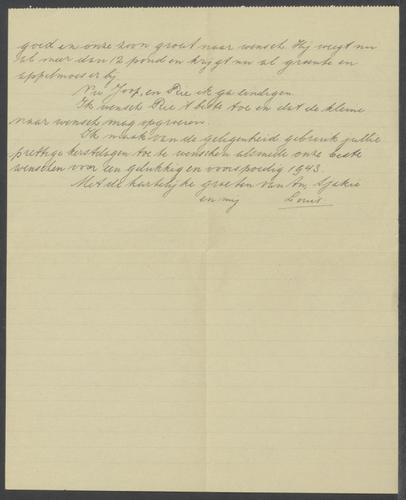 goed en onze zoon groeit naar wensch. Hij weegt nu
al meer dan 12 pond en krijgt nu al groente en
appelmoes er bij.
Nu Joop, en Rie ik ga eindigen.
Ik wensch Rie 't beste toe en dat de kleine
naar wensch mag opgroeien.
Ik maak van de gelegenheid gebruik jullie
prettige kerstdagen toe te wenschen alsmede onze beste
wenschen voor een gelukkig en voorspoedig 1943.
Met de hartelijke groeten van
en mij Louis.